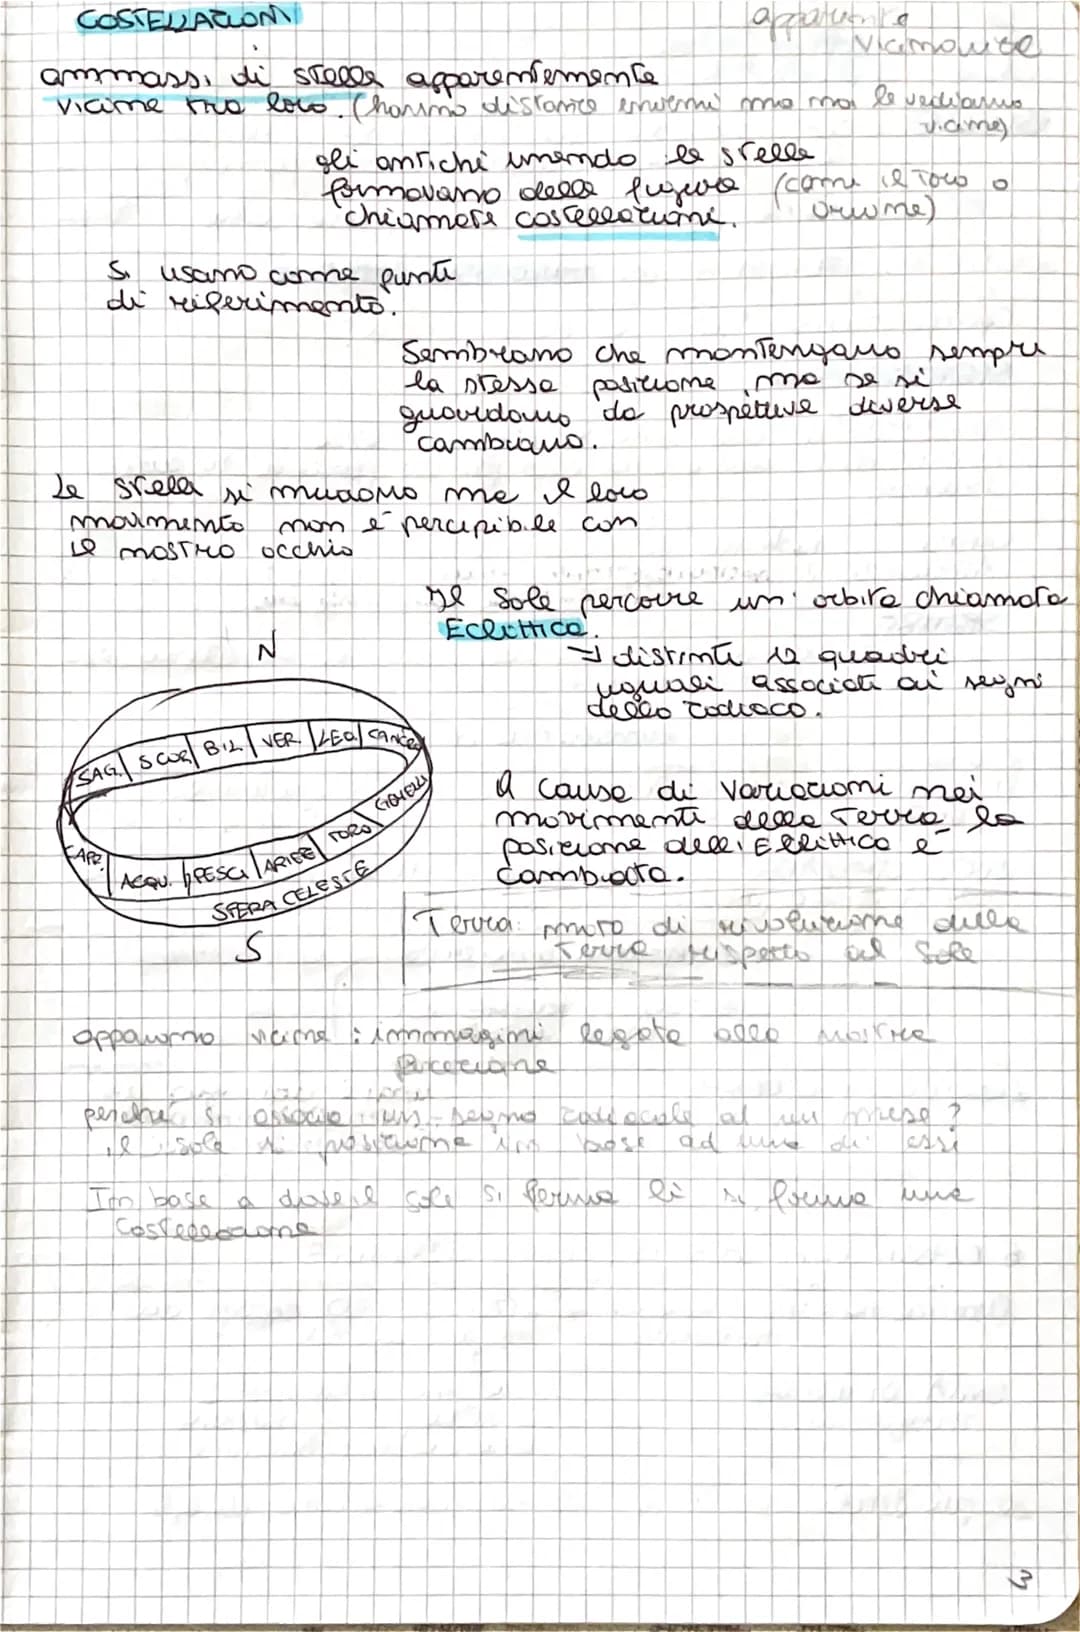 COSTELLAZIONI
apparente
vicinanza
ammassi di stelle apparentemente
vicine tra loro. (hanno distanze enormi ma noi le vediamo
vicine)
gli antichi unendo le stelle
formavano delle figure (come il Toro o
Orione)
chiamate costellazioni.
Si usano come punti
di riferimento.
Sembrano che mantengano sempre
la stessa posizione, ma se si
guardano da prospettive diverse
cambiano.
Le stelle si muovono ma il loro
movimento non è percepibile con
il nostro occhio
Il Sole percorre un' orbita chiamata
Eclittica.
→ distinti 12 quadri
uguali associati ai segni
dello zodiaco.
N
SAG. SCOR BIL VER. LEO CANCRO
GEMELLI
CAPR. ACQU. PESCI ARIETE TORO
SFERA CELESTE
S
A causa di variazioni nei
movimenti della Terra la
posizione dell' Ellittica è
cambiata.
Terra: moto di rivoluzione della
Terra rispetto al Sole
appaiono vicine: immagini legate alla nostra
posizione
perché si associa un segno zodiacale ad un mese?
il sole si posiziona in base ad uno di essi
In base a dove il sole si ferma lì si forma una
Costellazione
3